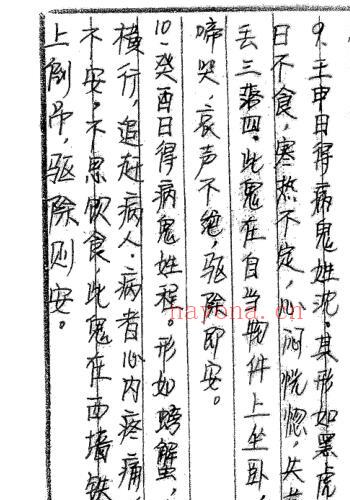 9.壬申日得病鬼姓沈。其形如黑虎
日不食，寒热不定，心闷恍惚，失
丢三落四。此鬼在自当物件上坐卧，
啼哭，哀声不绝，驱除即安。
10.癸酉日得病鬼姓程。形如螃蟹，
横行，追赶病人。病者心内疼痛，
不安，不思饮食，此鬼在西墙铁
上倒吊，驱除则安。
hayona.cn